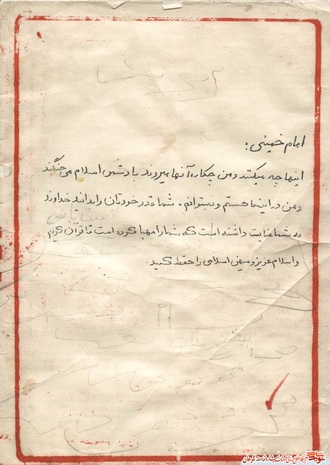 امام خمینی:
اینها چه میکنند و من چکاره‌ام آنها میروند با دشمن اسلام می‌جنگند
و من در اینجا هستم و نمیتوانم. شما قدر خودتان را بدانید خداوند
به شما عنایت داشته است که شما را مهیا کرده است تا قرآن کریم
و اسلام عزیز و میهن اسلامی را حفظ کنید.